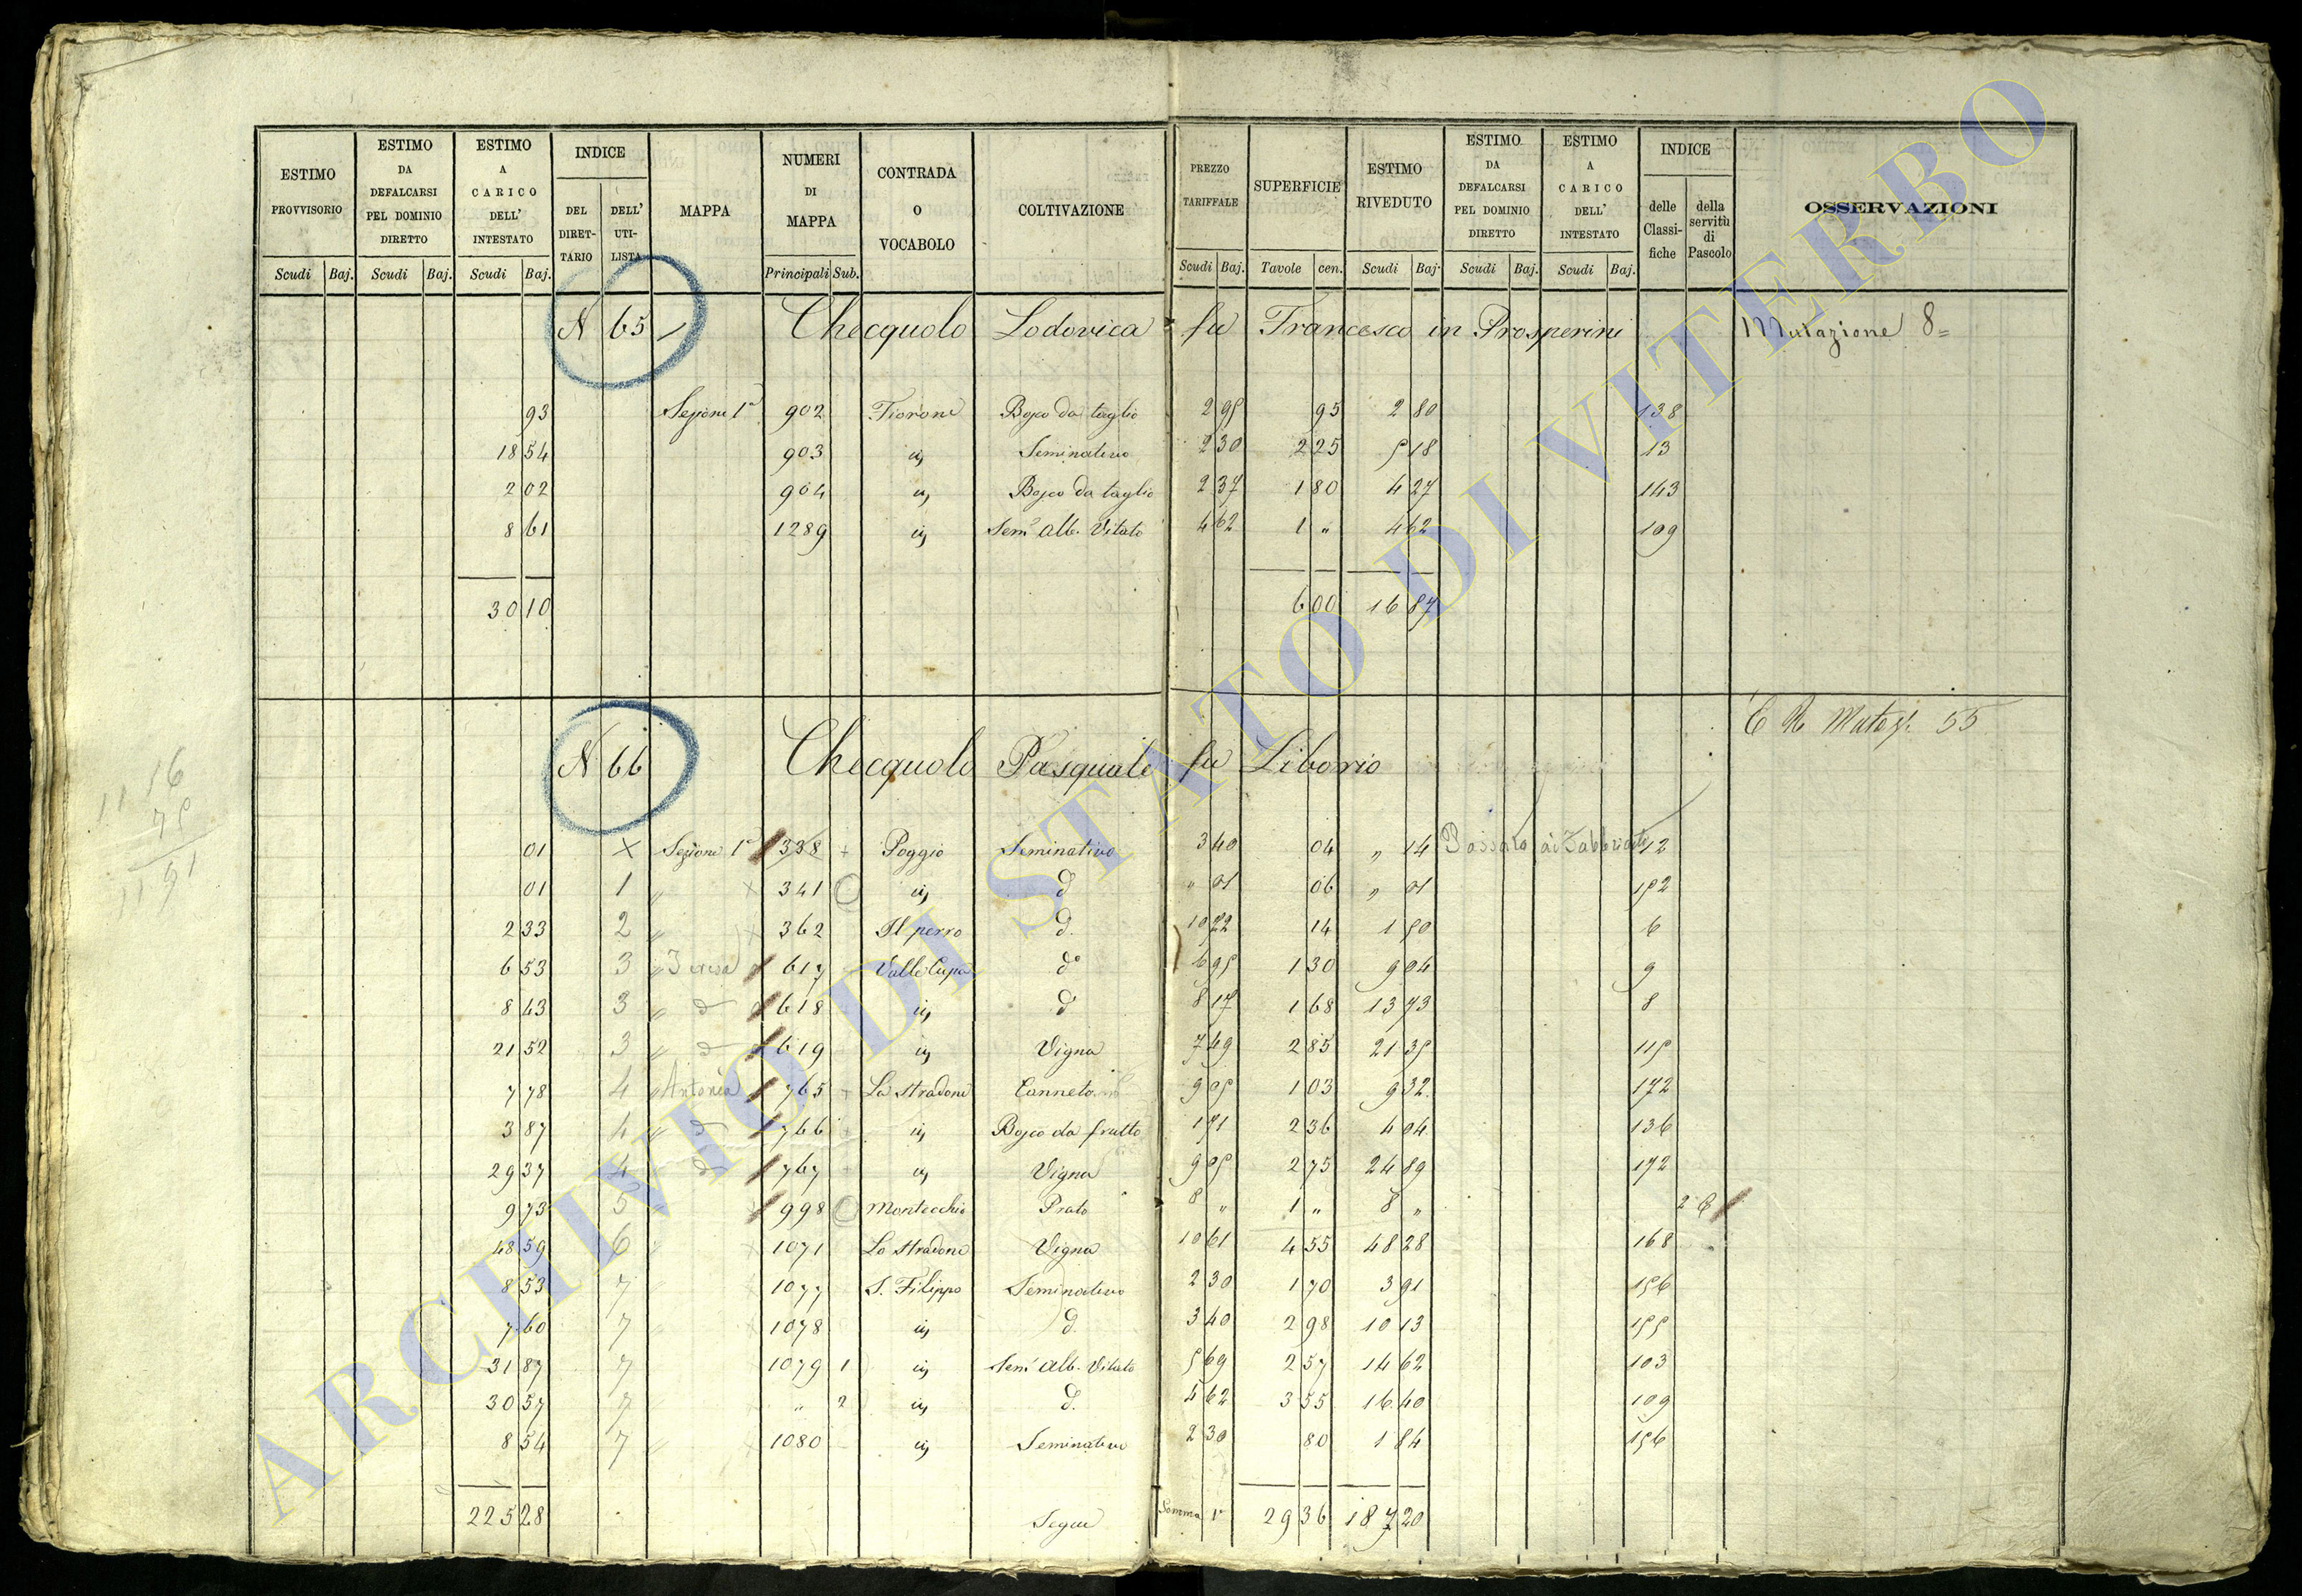 ESTIMO PROVVISORIO Scudi Baj. ESTIMO DA DEFALCARSI PEL DOMINIO DIRETTO Scudi Baj. ESTIMO A CARICO DELL' INTESTATO Scudi Baj. INDICE DEL DIRETTARIO DELL' UTILISTA MAPPA NUMERI DI MAPPA Principali Sub. CONTRADA O VOCABOLO COLTIVAZIONE PREZZO TARIFFALE Scudi Baj. SUPERFICIE Tavole cen. ESTIMO RIVEDUTO Scudi Baj. ESTIMO DA DEFALCARSI PEL DOMINIO DIRETTO Scudi Baj. ESTIMO A CARICO DELL' INTESTATO Scudi Baj. INDICE delle Classifiche della servitù di Pascolo OSSERVAZIONI
N 65 Checquolo Lodovica fu Francesco in Prosperini Mutazione 8=
93 Sezione 1a 902 Fiorone Bosco da taglio 2 95 95 2 80 138
18 54 903 id Seminativo 2 30 2 25 5 18 13
2 02 904 id Bosco da taglio 2 37 1 80 4 27 143
8 61 1289 id Sem. alb. Vitato 4 62 1 " 4 62 109
30 10 6 00 16 87
C R Mutaz. 55
N 66 Checquolo Pasquale fu Liborio
01 X Sezione 1a 338 + Poggio Seminativo 3 40 04 " 14 Passato ai Fabbricati 12
01 1 " 341 id d " 01 06 " 01 152
2 33 2 " 362 Il perro d. 10 72 14 1 50 6
6 53 3 " Teresa 617 Valle Cupa do 6 95 1 30 9 04 9
8 43 3 " d 618 id d 8 17 1 68 13 73 8
21 52 3 " d 619 id Vigna 7 49 2 85 21 35 115
7 78 4 " Antonia 765 Lo Stradone Canneto 9 05 1 03 9 32 172
3 87 4 " d 766 id Bosco da frutto 1 71 2 36 4 04 136
29 37 4 d 767 id Vigna 9 05 2 75 24 89 172
9 73 5 998 Montecchio Prato 8 " 1 " 8 " 2 C
48 59 6 1071 Lo Stradone Vigna 10 61 4 55 48 28 168
8 53 7 1077 S. Filippo Seminativo 2 30 1 70 3 91 156
7 60 7 1078 id d. 3 40 2 98 10 13 155
31 87 7 1079 1 id Sem. alb. Vitato 5 69 2 57 14 62 103
30 57 7 " 2 id d. 4 62 3 55 16 40 109
8 54 7 1080 id Seminativo 2 30 80 1 84 156
225 28 Segue Somma 1a 29 36 187 20
11 16
75
11 91
ARCHIVIO DI STATO DI VITERBO